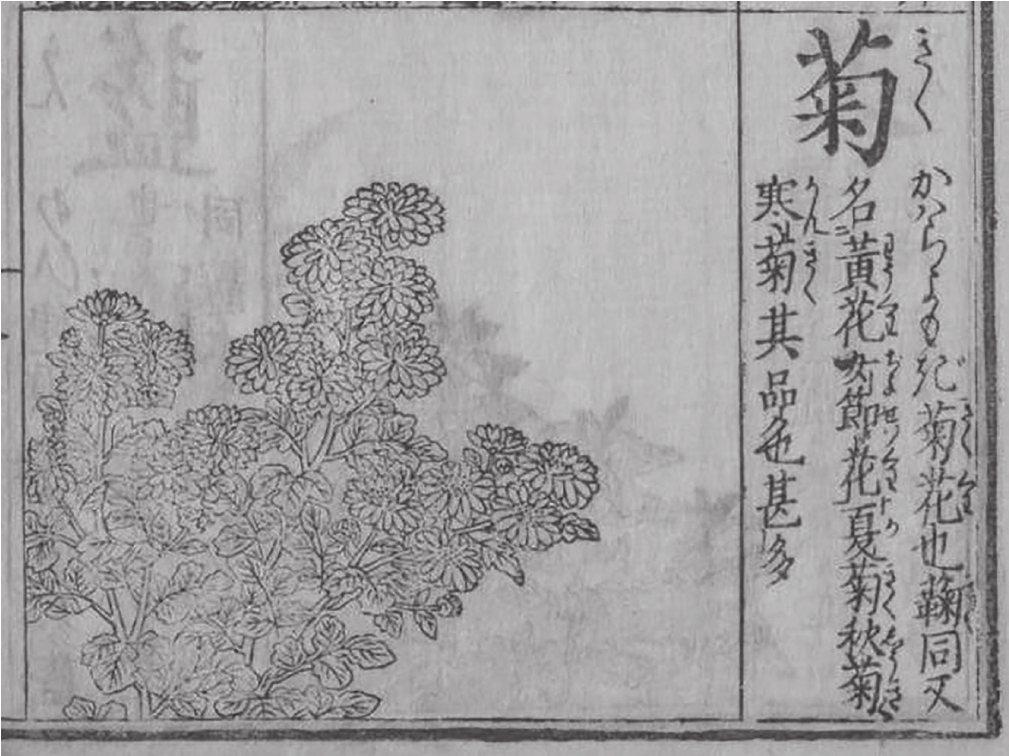 菊
きく
かはらよもぎ菊花也蘜同又
名黄花女節花夏菊秋菊
寒菊其品也甚多